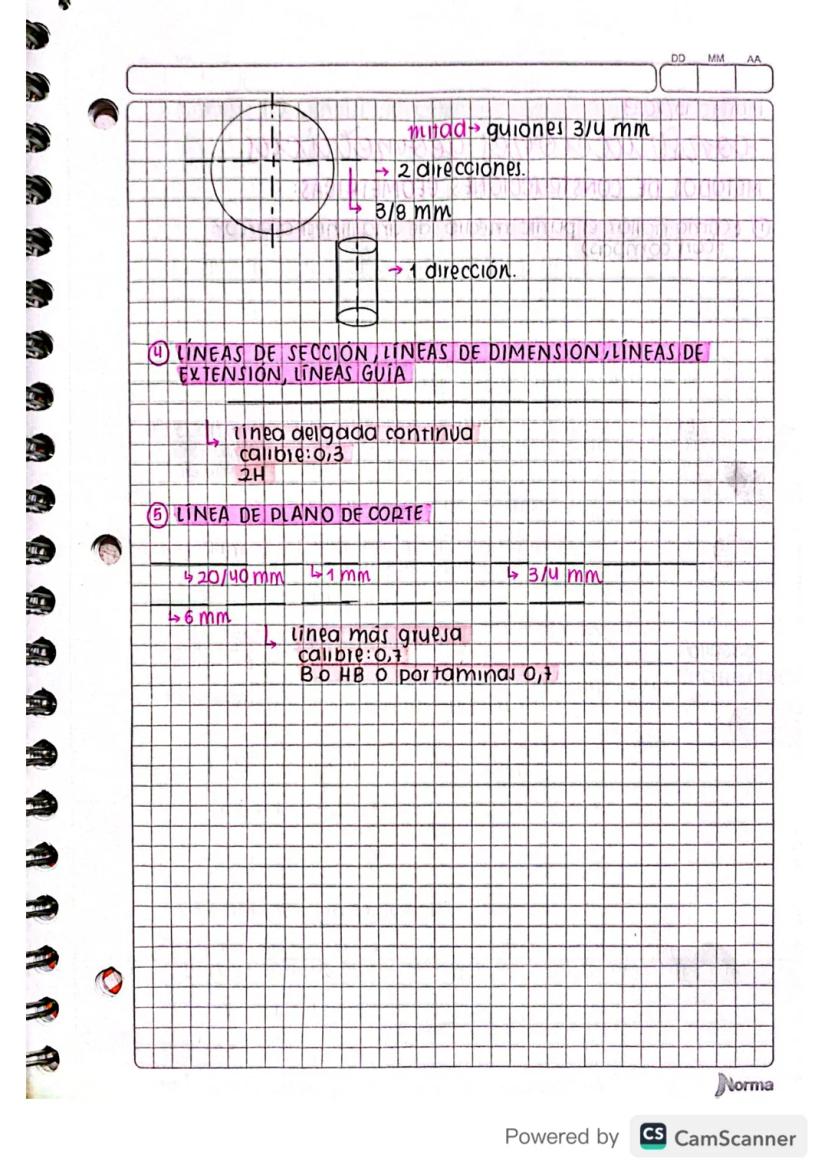 DD MM AA
mitad→ guiones 3/4 mm
→ 2 direcciones.
↳ 3/8 mm
→ 1 dirección.
④ LÍNEAS DE SECCIÓN, LÍNEAS DE DIMENSIÓN, LÍNEAS DE
EXTENSIÓN, LÍNEAS GUÍA
↳ línea delgada continua
calibre: 0,3
2H
⑤ LÍNEA DE PLANO DE CORTE
↳ 20/40 mm ↳ 1 mm ↳ 3/4 mm
↳ 6 mm
↳ línea más gruesa
calibre: 0,7
B o HB o portaminas 0,7
Norma
Powered by CS CamScanner